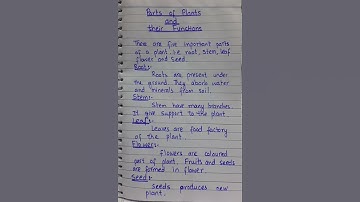 Parts of Plants
and
their Functions
There are five important parts
of a plant. i.e root, stem, leaf
flower and seed.
Root:-
Roots are present under
the ground. They absorb water
and minerals from soil.
Stem:-
Stem have many branches
It give support to the plant.
Leaf:-
Leaves are food factory
of the plant.
Flower:-
Flowers are coloured
part of plant. Fruits and seeds
are formed in flower.
Seed:-
Seeds produces new
plant.